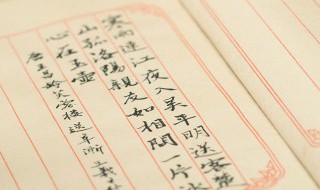 寒雨連江夜入吴平明送客楚
山孤洛陽親友如相問一片冰
心在玉壺
唐王昌龄芙蓉楼送辛渐